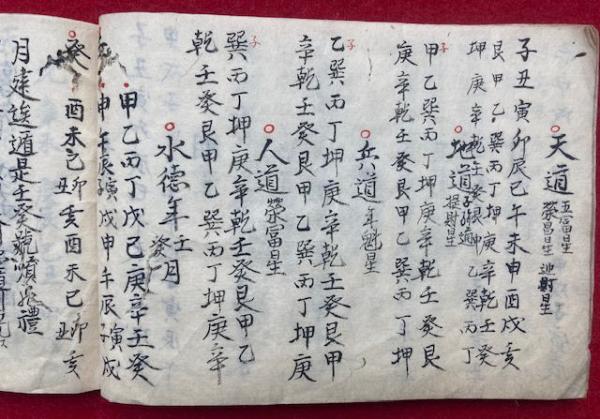 天道 五富星 榮昌星 迎財星
子丑寅卯辰巳午未申酉戌亥
艮甲乙巽丙丁坤庚辛乾壬癸
坤庚辛乾壬癸艮甲乙巽丙丁
地道 提財星
子
甲乙巽丙丁坤庚辛乾壬癸艮
庚辛乾壬癸艮甲乙巽丙丁坤
兵道 年魁星
子
乙巽丙丁坤庚辛乾壬癸艮甲
辛乾壬癸艮甲乙巽丙丁坤庚
人道 榮富星
子
巽丙丁坤庚辛乾壬癸艮甲乙
乾壬癸艮甲乙巽丙丁坤庚辛
水德年壬癸月
甲乙丙丁戊己庚辛壬癸
申午辰寅戌申午辰子寅戌
酉未巳卯丑亥酉未巳卯丑亥
月建遁是壬癸號順禮